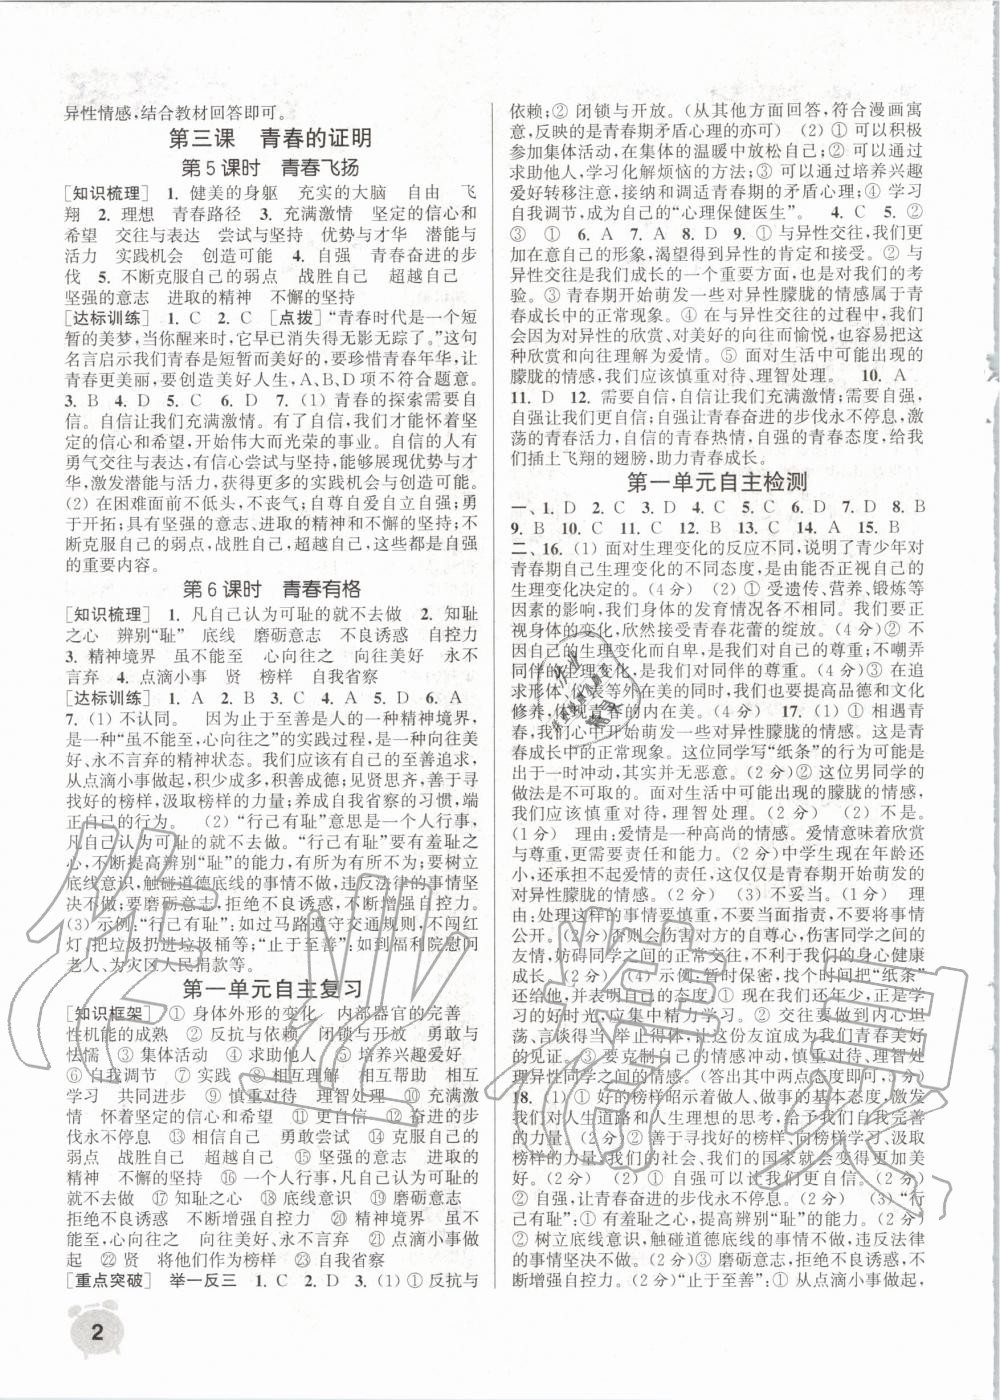 异性情感,结合教材回答即可。
第三课　青春的证明
第5课时　青春飞扬
[知识梳理]　1. 健美的身躯　充实的大脑　自由　飞
翔　2. 理想　青春路径　3. 充满激情　坚定的信心和
希望　交往与表达　尝试与坚持　优势与才华　潜能与
活力　实践机会　创造可能　4. 自强　青春奋进的步
伐　5. 不断克服自己的弱点　战胜自己　超越自己
坚强的意志　进取的精神　不懈的坚持
[达标训练]　1. C　2. C　[点拨]“青春时代是一个短
暂的美梦,当你醒来时,它早已消失得无影无踪了。”这句
名言启示我们青春是短暂而美好的,要珍惜青春年华,让
青春更美丽,要创造美好人生,A、B、D项不符合题意。
3. B　4. D　5. C　6. D　7. (1) 青春的探索需要自
信。自信让我们充满激情。有了自信,我们才能怀着坚
定的信心和希望,开始伟大而光荣的事业。自信的人有
勇气交往与表达,有信心尝试与坚持,能够展现优势与才
华,激发潜能与活力,获得更多的实践机会与创造可能。
(2) 在困难面前不低头,不丧气;自尊自爱自立自强;勇
于开拓;具有坚强的意志、进取的精神和不懈的坚持;不
断克服自己的弱点,战胜自己,超越自己,这些都是自强
的重要内容。
第6课时　青春有格
[知识梳理]　1. 凡自己认为可耻的就不去做　2. 知耻
之心　辨别“耻”　底线　磨砺意志　不良诱惑　自控力
3. 精神境界　虽不能至　心向往之　向往美好　永不
言弃　4. 点滴小事　贤　榜样　自我省察
[达标训练]　1. A　2. B　3. C　4. A　5. D　6. A
7. (1) 不认同。　因为止于至善是人的一种精神境界,
是一种“虽不能至,心向往之”的实践过程,是一种向往美
好、永不言弃的精神状态。我们应该有自己的至善追求,
从点滴小事做起,积少成多,积善成德;见贤思齐,善于寻
找好的榜样,汲取榜样的力量;养成自我省察的习惯,端
正自己的行为。　(2) “行己有耻”意思是一个人行事,
凡自己认为可耻的就不去做。“行己有耻”要求我们要有
知耻之心,不断提高辨别“耻”的能力,有所为有所不为;要树立
底线意识,触碰道德底线的事情不做,违反法律的事情坚
决不做;要磨砺意志,拒绝不良诱惑,不断增强自控力。
(3) 示例:“行己有耻”:如过马路遵守交通规则,不闯红
灯;把垃圾扔进垃圾桶等;“止于至善”:如到福利院慰问
老人、为灾区人民捐款等。
第一单元自主复习
[知识框架]　① 身体外形的变化　内部器官的完善
性机能的成熟　② 反抗与依赖　闭锁与开放　勇敢与
怯懦　③ 集体活动　④ 求助他人　⑤ 培养兴趣爱好
⑥ 自我调节　⑦ 实践　⑧ 相互理解　相互帮助　相互
学习　共同进步　⑨ 慎重对待　理智处理　⑩ 充满激
情　怀着坚定的信心和希望　⑪ 更自信　⑫ 奋进的步
伐永不停息　⑬ 相信自己　勇敢尝试　⑭ 克服自己的
弱点　战胜自己　超越自己　⑮ 坚强的意志　进取的
精神　不懈的坚持　⑯ 一个人行事,凡自己认为可耻的
就不去做　⑰ 知耻之心　⑱ 底线意识　⑲ 磨砺意志,
拒绝不良诱惑　不断增强自控力　⑳ 精神境界　虽不
能至　心向往之　向往美好　永不言弃　㉑ 点滴小事
做起　㉒ 贤　将他们作为榜样　㉓ 自我省察
[重点突破]　举一反三　1. C　2. D　3. (1) ① 反抗与
依赖;② 闭锁与开放。(从其他方面回答,符合漫画寓
意,反映的是青春期矛盾心理的亦可)　(2) ① 可以积极
参加集体活动,在集体的温暖中放松自己;② 可以通过
求助他人,学习化解烦恼的方法;③ 可以通过培养兴趣
爱好转移注意,接纳和调适青春期的矛盾心理;④ 学习
自我调节,成为自己的“心理保健医生”。　4. C　5. ②
③　①　6. A　7. A　8. D　9. ① 与异性交往,我们更
加在意自己的形象,渴望得到异性的肯定和接受。② 与
异性交往,是我们成长的一个重要方面,也是对我们的考
验。③ 青春期开始萌发一些对异性朦胧的情感属于青
春成长中的正常现象。④ 与异性交往的过程中,我们
会因为对异性的欣赏、对美好的向往而愉悦,也容易把这
种欣赏和向往理解为爱情。⑤ 面对生活中可能出现的
朦胧的情感,我们应该慎重对待、理智处理。　10. A
11. D　12. 需要自信,自信让我们充满激情;需要自强,
自强让我们青春奋进的步伐永不停息;自强让青春奋进的步伐永不停息,激
荡的青春活力、自信的青春热情、自强的青春态度,给我
们插上飞翔的翅膀,助力青春成长。
第一单元自主检测
一、1. D　2. C　3. D　4. C　5. D　6. D　7. D　8. B
9. B　10. C　11. C　12. B　13. C　14. A　15. B
二、16. (1) 面对生理变化的反应不同,说明了青少年对
青春期自己生理变化的不同态度,是由能否正视自己的
生理变化所决定的。(4分)　(2) ① 受遗传、营养、锻炼等
因素的影响,我们身体的发育情况各不相同。我们要正
视身体的变化,欣然接受青春花蕾的绽放。(4分)② 不
因自己的生理变化而自卑,是对我们自己的尊重;不嘲弄
同伴的生理变化,是我们对同伴的尊重。(4分)③ 在追
求形体、仪表等外在美的同时,我们也要提高品德和文化
修养,体现青春的内在美。(4分)　17. (1) 相遇青
春,我们心中开始萌发一些对异性朦胧的情感。这是青
春成长中的正常现象。这位同学写“纸条”的行为可能是
出于一时冲动,没有处理好自己的情感。(2分)这位男同学的
做法是不可取的。面对生活中可能出现的朦胧的情感,
我们应该慎重对待,理智处理。(2分)　(2) 不是。
(1分)　理由:爱情是一种高尚的情感。爱情意味着欣赏
与尊重,更需要责任和能力。(2分)中学生现在年龄还
小,还承担不起爱情的责任,这只是青春期开始萌发的
对异性朦胧的情感。(2分)　(3) 不妥当。(1分)　理
由:处理这样的事情要慎重,不要当面指责,不要将事情
公开。(2分)否则会伤害对方的自尊心,伤害同学之间的
友情,妨碍同学之间的正常交往,影响同学的身心健康
成长。(2分)　(4) 示例:暂时冷处理,找个时间把“纸条”
还给对方,并表明自己的态度:① 现在我们还小,还处于学
习的好时光,应集中精力学习。② 交往要做到内心坦
荡、言谈得当、举止得体,让这份友谊成为我们青春美好
的见证。③ 要克制自己的情感冲动,慎重对待、理智处
理异性同学之间的情感。(答出其中两点态度即可,3分)
18. (1) ① 好的榜样昭示着做人、做事的基本态度,激发
我们对人生道路和人生理想的思考,给予我们自我完善
的力量。(2分)② 善于寻找好的榜样,向榜样学习、汲取
榜样的力量,我们的社会、我们的国家就会变得更加美
好。(2分)　(2) ① 自强可以让我们更加自信。(2分)
② 自强,让青春奋进的步伐永不停息。(2分)　(3) “行
己有耻”:① 有羞耻之心,提高辨别“耻”的能力。(2分)
② 树立底线意识,触碰道德底线的事情不做,违反法律
的事情坚决不做。(2分)③ 磨砺意志,拒绝不良诱惑,不
断增强自控力。(2分)“止于至善”:① 从点滴小事做起,
2